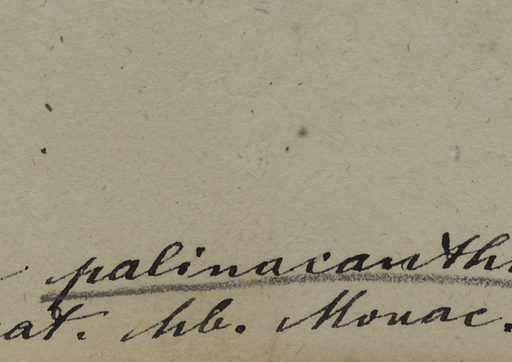 palinacanth
at. hb. Monac.